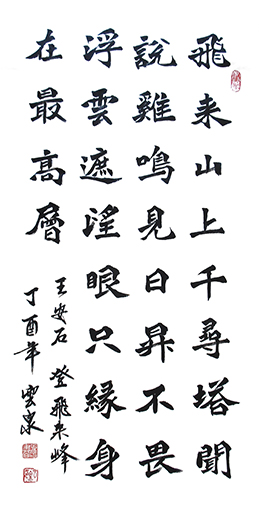 飛来山上千尋塔聞
說雞鳴見日昇不畏
浮雲遮望眼只緣身
在最高層
王安石 登飛来峰
丁酉年 雲泉